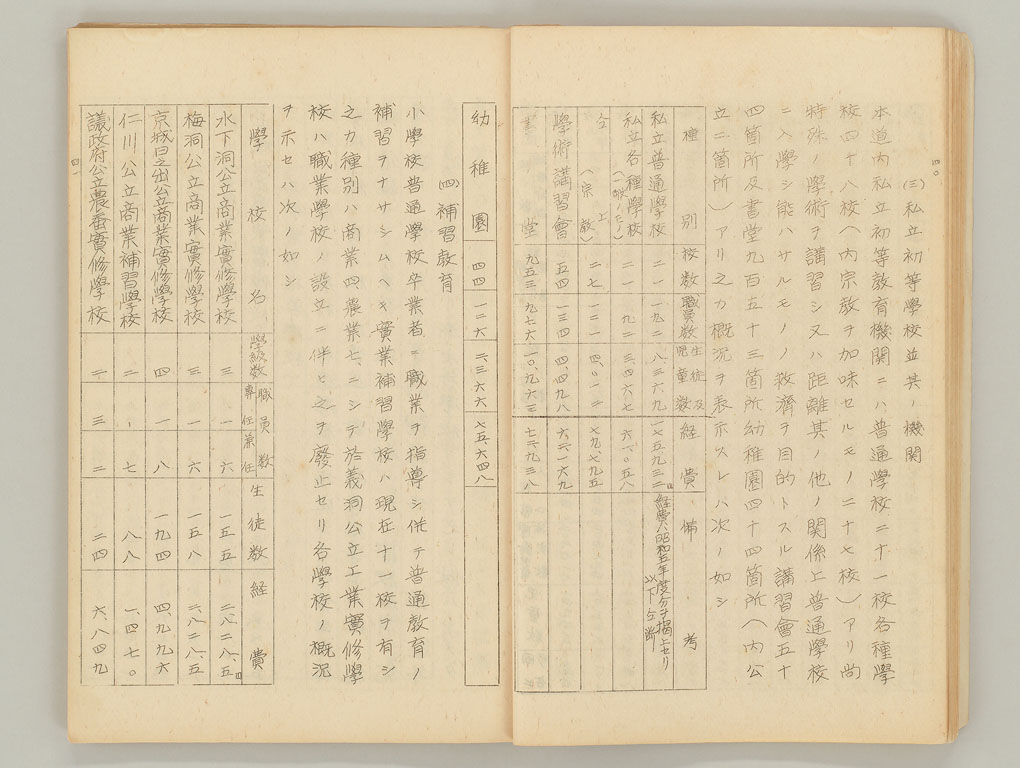 四〇
(三)私立初等學校並其ノ機関
本道内私立初等教育機関ニハ普通學校二十一校各種學
校四十八校(内宗教ヲ加味セルモノ二十七校)アリ尚
特殊ノ學術ヲ講習シ又ハ距離其ノ他ノ関係上普通學校
ニ入學シ能ハサルモノノ救濟ヲ目的トスル講習會五十
四箇所及書堂九百五十三箇所幼稚園四十四箇所(内公
立二箇所)アリ之カ概況ヲ表示スレハ次ノ如シ
種別 校数 職員数 生徒及児童数 経費 備考
私立普通學校 二一 一九二 八三六九 一七五九三二円 経費ハ昭和五年度分ヲ掲上セリ以下仝断
私立各種學校(一般ノモノ) 二一 九二 三、四六七 六一、〇五八
仝上(宗教) 二七 一三一 四、〇一二 七九、七九五
學術講習會 五四 一三四 四、四九八 六六、一六九
書堂 九五三 九七六 一〇、九六三 七六、九三八
幼稚園 四四 一二六 二、三六六 七五、六四八
(四)補習教育
小學校普通學校卒業者ニ職業ヲ指導シ併テ普通教育ノ
補習ヲナサシムヘキ實業補習學校ハ現在十一校ヲ有シ
之カ種別ハ商業四、農業七、ニシテ於義洞公立工業實修學
校ハ職業學校ノ設立ニ伴ヒ之ヲ廢止セリ各學校ノ概況
ヲ示セハ次ノ如シ
學校名 學級数 職員数 專任 兼任 生徒数 経費
水下洞公立商業實修學校 三 一 六 一五五 二、八二八、五円
梅洞公立商業實修學校 三 一 六 一五八 二、八二八、五
京城日之出公立商業實修學校 四 一 八 一九四 四、九九六
仁川公立商業補習學校 二 、 七 八八 一、四七〇
議政府公立農蚕實修學校 二 三 二 二四 六、八四九
四一